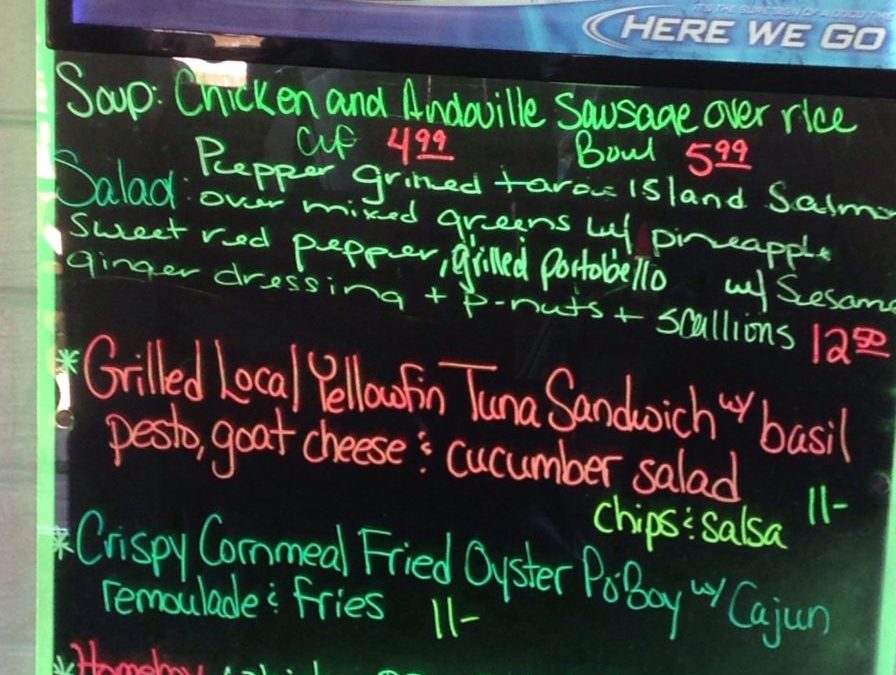 IT'S THE SURE SIGN OF A GOOD TIME
HERE WE GO
Soup: Chicken and Andouille Sausage over rice
Cup 4.99 Bowl 5.99
Salad: Pepper grilled Island Salmo
over mixed greens w/ pineapple
sweet red pepper, grilled portobello w/ Sesame
ginger dressing + p-nuts + scallions 12.50
* Grilled Local Yellowfin Tuna Sandwich w/ basil
pesto, goat cheese & cucumber salad
chips & salsa 11-
* Crispy Cornmeal Fried Oyster Po'Boy w/ Cajun
remoulade & fries 11-
* Homeboy